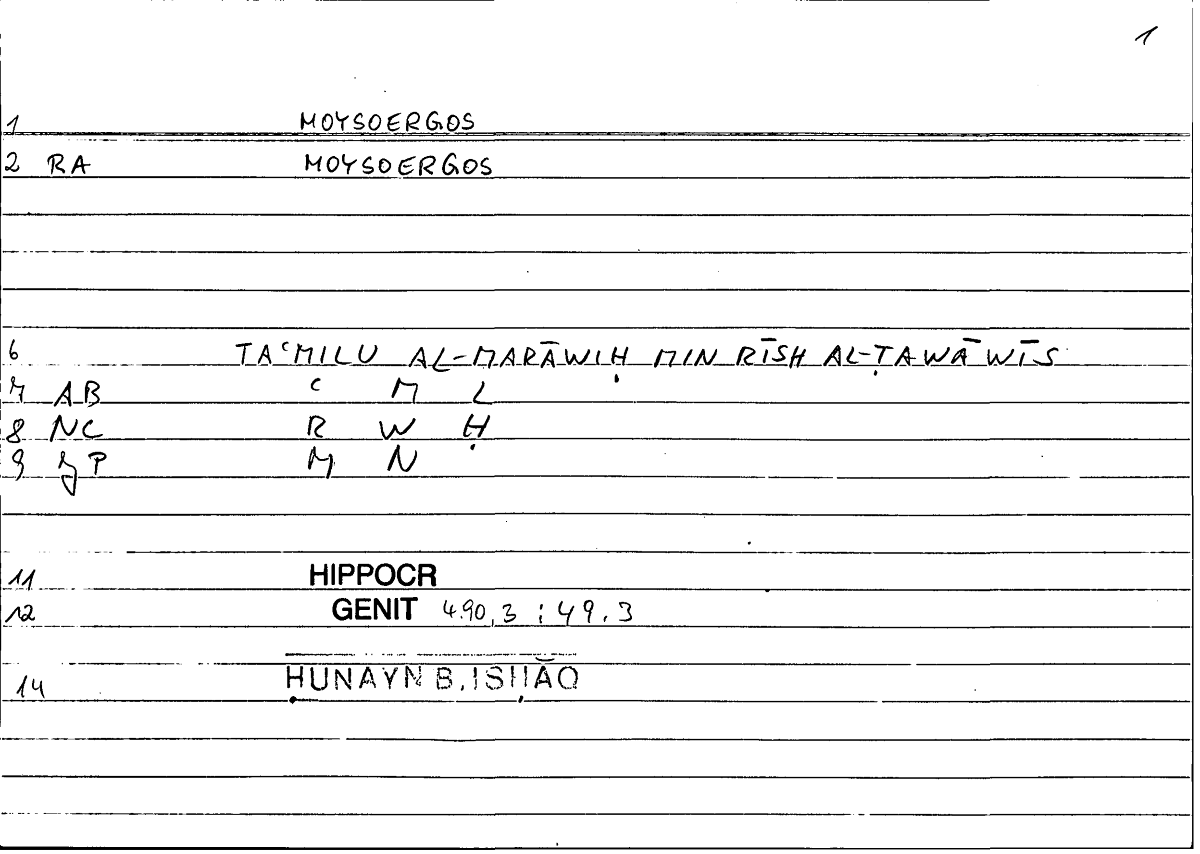 1
1 MOYSOERGOS
2 RA MOYSOERGOS
6 TAʿMILU AL-MARĀWIḤ MIN RĪSH AL-ṬAWĀWĪS
7 AB ʿ M L
8 NC R W Ḥ
9 ZP M N
11 HIPPOCR
12 GENIT 4.90,3 ; 49.3
14 ḤUNAYN B. ISḤĀQ